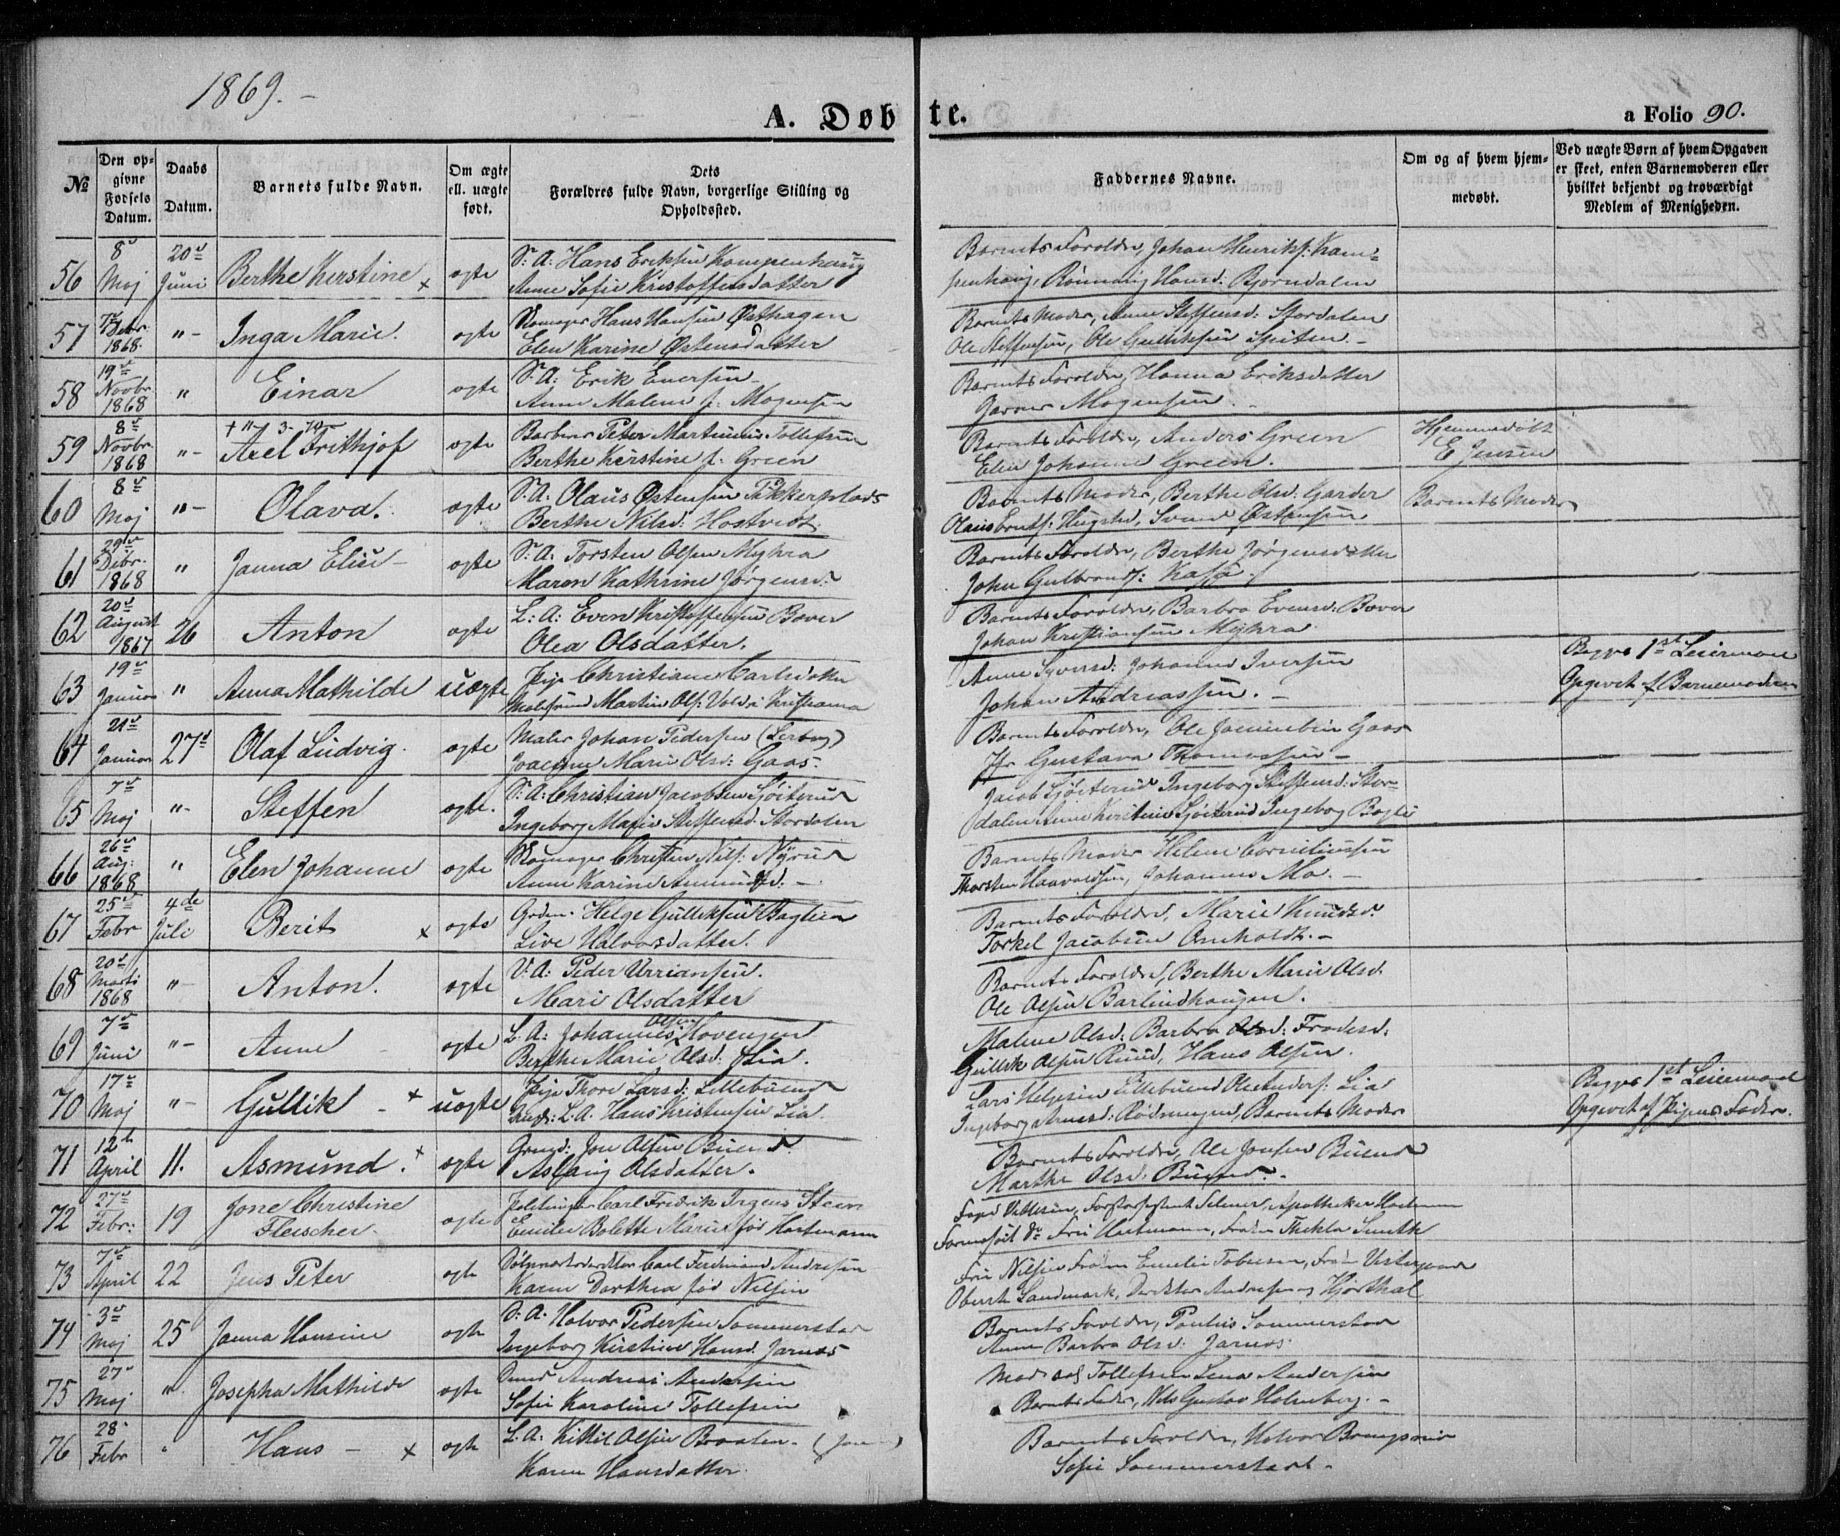 1869.-
A. Døbte.
a Folio 90.
№
Den op-
givne
Fødsels
Datum.
Daabs
Datum.
Barnets fulde Navn.
Om ægte
ell. uægte
født.
Dets
Forældres fulde Navn, borgerlige Stilling og
Opholdssted.
Faddernes Navne.
Om og af hvem hjem-
medøbt.
Ved uægte Børn af hvem Opgaven
er skeet, enten Barnemoderen eller
hvilket bekjendt og troværdigt
Medlem af Menigheden.
56 8de Maj 20de Juni Berthe Kerstine x ægte S. A: Hans Eriksen Kampenhaug
Anne Sofie Kristoffersdatter
Barnets Foreldre, Johan Henriks. Kam-
penhaug, Rønnaug Hansd: Bjørndalen
57 Debr. 1868. "- Inga Marie. ægte Skomager Hans Hansen Østhagen
Elen Karine Østensdatter
Barnets Moder, Anne Steffensd: Stordalen
Ole Steffensen, Ole Gulliksen Spiten -
58 19de Novbr. 1868 " Einar ægte S. A: Erik Eversen
Anne Malene f. Mogensen
Barnets Foreldre, Hanna Eriksdatter
Garver Mogensen.
59 8de Novbr. 1868 "- + 11-3-70
Axel Frithjof ægte Barber Peter Martinius Tollefsen
Berthe Kirstine f. Green
Barnets Foreldre, Anders Green
Elen Johanne Green.
Hjemmedøbt
E Jensen
60 8de Maj "- Olava. ægte S. A: Olaus Østensen Pukkerplads
Berthe Nilsd: Hostvedt
Barnets Moder, Berthe Olsd: Garder
Olaus Hugsted, Svend Østensen
Barnets Moder
61 29de Debr. 1868 " Janna Elise - ægte S. A: Torsten Olsen Myhra
Maren Kathrine Jørgensd:
Barnets Foreldre, Berthe Jørgensdatter
John Gulbrands: Kasa.
62 20de August 1867 26 Anton ægte L: A: Even Kristoffersen Bover
Olea Olsdatter.
Barnets Foreldre, Barbro Evensd: Bover
Johan Kristiansen Myhra
63 19de Januar " Anna Mathilde uægte Pige Christiane Carlsdatter
Martin Ols: Vold i Kristiania
Anne Syversd: Johanne Iversen
Johan Andreassen. -
Begges 1st Leiermaal
Opgevet af Barnemoderen
64 21de Januar 27d Olaf Ludvig. ægte Maler Johan Pedersen (Lerberg)
Marie Olsd: Gaas.
Barnets Foreldre, Ole Gaas
Jfr Gustava Thomassen -
65 7de Maj "- Steffen ægte. S. A: Christian Jacobsen Sjøiterud
Ingeborg Marie Steffensd: Stordalen
Jacob Sjøiterud Ingeborg Steffensd: Stor-
dalen Anne Kirstine Sjøiterud Ingeborg
66 26de Aug: 1868 " Elen Johanne ægte Skomager Christen Nils: Nyrud
Anne Karine Amundsd. -
Barnets Moder Helene Corneliussen
Thorsten Haavoldsen, Johannes Mo. -
67 25de Febr 4de Juli Berit x ægte Grdm. Helge Gulliksen Baglien
Live Halvorsdatter.
Barnets Foreldre, Marie Knudsd.
Torkel Jacobsen Omholdt. -
68 20de Marts 1868 "- Anton. ægte S. A: Peder Urriansen.
Mari Olsdatter
Barnets Foreldre, Berthe Marie Olsd.
Ole Olsen Barlindhaugen.
69 7de Juni "- Anne - ægte L. A: Johannes Olsen Hovengen
Berthe Marie Olsd. Lia.
Malene Olsd: Barbro Olsd: Frodesd:
Gullik Olsen Ruud, Hans Olsen.
70 17de Maj "- Gullik - x uægte Pige Thore Larsd: Lillebuend
Ungk: L. A. Hans Kristensen Lia.
Lars Helgesen Lillebuend Ole Anders: Lia
Ingeborg Arnesd: Rødningen, Barnets Moder
Begges 1st Leiermaal
Opgevet af Pigens Fader.
71 12te April 11. Asmund. x ægte Grmd: Jon Olsen Buend.
Aslaug Olsdatter.
Barnets Foreldre, Ole Jonsen Buend
Marthe Olsd. Buend. -
72 27de Febr: 19 Jone Christine
Fleischer. ægte Carl Fredrik Irgens Steen
Emilie Bolette Marie fød Hartmann
Forstassistent Selmer, Apotheker Hartmann
Frøken Thekla Smith
73 7de April 22 Jens Peter ægte Sølvværksdirektør Carl Ferdinand Andresen
Karen Dorthea fød Nilsen
Fru Nilsen Frøken Emelie Tobiesen,
Oberst Landmark, Direktør Andresen og Hjorthal
74 3de Maj 25 Janna Hansine ægte S. A: Halvor Pedersen Sommerstad
Ingeborg Kirstine Hansd. Jarnæs
Barnets Foreldre, Paulus Sommerstad
Anne Barbro Olsd: Jarnæs.
75 27 Maj " Josepha Mathilde ægte Smed Andreas Andersen
Sofie Karoline Tollefsen
Mads Tollefsen Lena Andersen
Barnets Fader, Nils Gustav Holmberg. -
76 28 Febr " Hans - x ægte L. A: Kittil Olsen Braaten
Karen Hansdatter.
Barnets Foreldre, Halvor
Sofie Sommerstad -